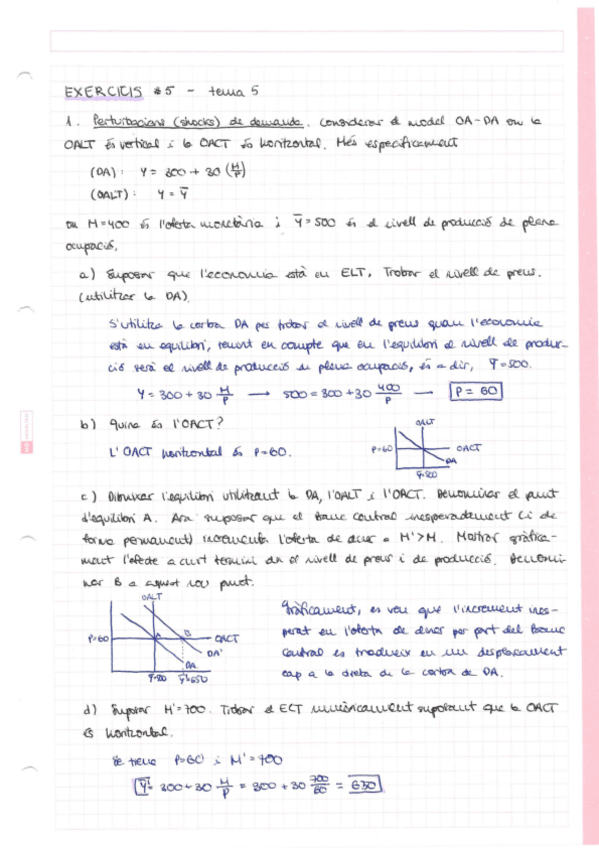 EXERCICIS #5 - tema 5
1. Pertorbacions (shocks) de demanda. Considerar el model OA-DA on la
OALT és vertical i la OACT és horitzontal. Més específicament
(DA): Y = 300 + 30 (M/P)
(OALT): Y = Ȳ
on M=400 és l'oferta monetària i Ȳ=500 és el nivell de producció de plena
ocupació.
a) Suposar que l'economia està en ELT. Trobar el nivell de preus.
(utilitzar la DA).
S'utilitza la corba DA per trobar el nivell de preus quan l'economia
està en equilibri, tenint en compte que en l'equilibri el nivell de produc-
ció serà el nivell de producció de plena ocupació, és a dir, Ȳ=500.
Y = 300 + 30 M/P → 500 = 300 + 30 400/P → P = 60
b) Quina és l'OACT?
L'OACT horitzontal és P=60.
OALT
P=60
OACT
DA
Ȳ=500
c) Dibuixar l'equilibri utilitzant la DA, l'OALT i l'OACT. Denominar el punt
d'equilibri A. Ara suposar que el Banc Central inesperadament (i de
forma permanent) incrementa l'oferta de diner a M'>M. Mostrar gràfica-
ment l'efecte a curt termini en el nivell de preus i de producció. Denomi-
nar B a aquest nou punt.
OALT
P=60
A
B
OACT
DA'
DA
Ȳ=500
Gràficament, es veu que l'increment ines-
perat en l'oferta de diners per part del Banc
Central es tradueix en un desplaçament
cap a la dreta de la corba de DA.
d) Suposar M'=700. Trobar el ECT numèricament suposant que la OACT
és horitzontal.
Es tenia P=60 i M'=700
= 300 + 30 M/P = 300 + 30 700/60 = 630